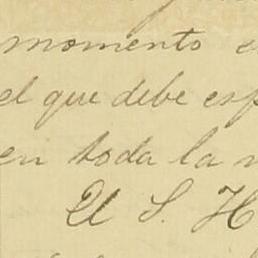 momento e
el que debe esp
en toda la
El S. H